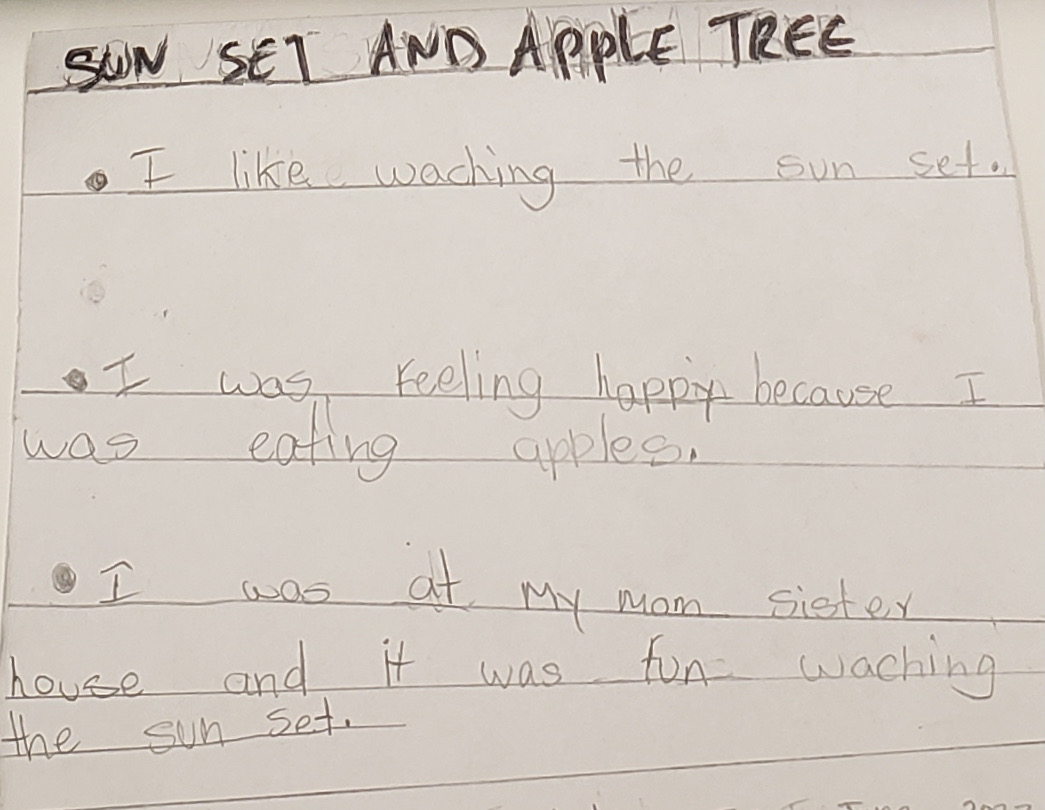 SUN SET AND APPLE TREE
• I like waching the sun set.
• I was feeling happy because I
was eating apples.
• I was at my mom sister
house and it was fun waching
the sun set.